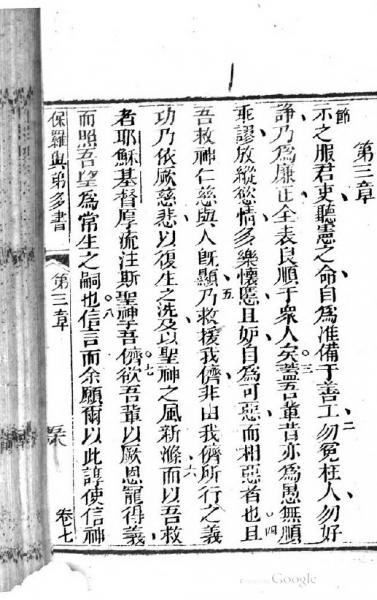 第三章
一節
示之服君吏聽憲之命自為准備于善工二勿冤枉人勿好
諍乃為廉正全表良順于眾人矣三蓋吾輩昔亦為愚無順
乖謬放縱慾情多樂懷慝且妒自為可惡而相惡者也四且
吾救神仁慈與人旣顯五乃救援我儕非由我儕所行之義
功乃依厥慈悲以復生之洗及以聖神之風新滌六而以吾救
者耶穌基督厚流注斯聖神吾儕七欲吾輩以厥恩寵得義
而照吾望為常生之嗣也八信言而余願爾以此諄使信神
保羅與弟多書 第三章 卷七
Google